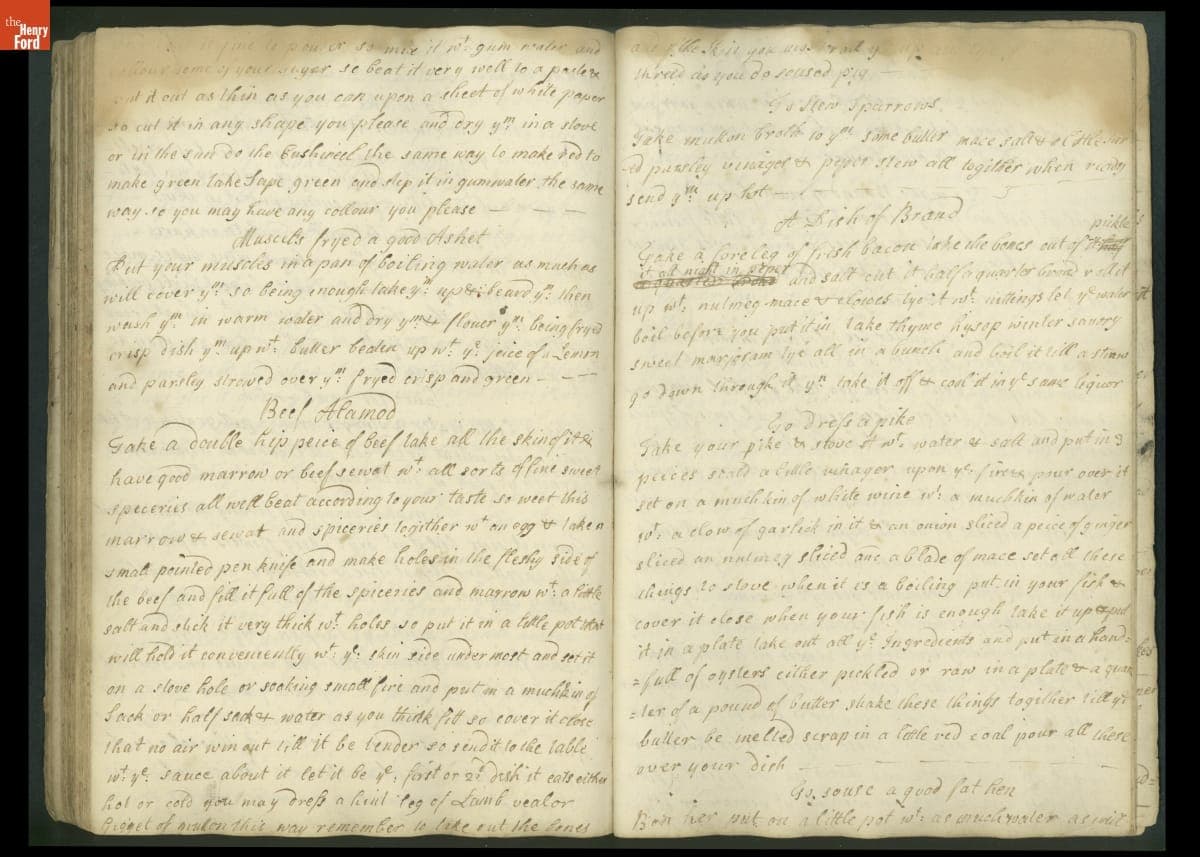 the Henry Ford
so mix it wt gum water and
collour some of your suger so beat it very well to a paste &
put it out as thin as you can upon a sheet of white paper
so cut it in any shape you please and dry ym in a stove
or in the sun do the the same way to make red to
make green take Sape green and step it in gumwater the same
way so you may have any collour you please — — —
Muscels fryed a good Ashet
Put your muscles in a pan of boiling water as much as
will cover ym so being enough take ym up & beard ym then
wash ym in warm water and dry ym & flouer ym being fryed
crisp dish ym up wt butter beaten up wt ye joice of a Lemm
and parsley strowed over ym fryed crisp and green — — —
Beef Alamod
Take a double hip peice of beef take all the skin of it &
have good marrow or beef sewat wt all sorts of fine sweet
speceries all well beat according to your taste so weet this
marrow & sewat and spiceries together wt an egg & take a
small pointed pen knife and make holes in the fleshy side of
the beef and fill it full of the spiceries and marrow wt a little
salt and stick it very thick wt holes so put it in a little pot that
will hold it conveniently wt ye skin side undermost and set it
on a stove hole or sooking small fire and put in a muchkin of
Sack or half sack & water as you think fitt so cover it close
that no air win out till it be tender so send it to the table
wt ye sauce about it let it be ye: first or 2d dish it eats either
hot or cold you may dress a hint leg of Lamb veal or
Gigget of muton this way remember to take out the bones
up
thread as you do soused pig —
To stew Sparrows
Take mutton broth to ym some butter mace salt & a little
parsley vinager & peper stew all together when ready
send ym up hot — — —
A Dish of Brand
pickle
Take a foreleg of frish bacon take the bones out of it
it all night in peper
and salt cut it half a quarter broad roll it
up wt nutmeg mace & clowes tye it wt let ye water
boil before you put it in take thyme hysop winter savory
sweet marjoram tye all in a bunch and boil it till a straw
go down through it yn take it off & cool it in ye same liquor
To dress a pike
Take your pike & stove it wt water & salt and put in 3
peices scald a little vinager upon ye fire & pour over it
set on a muchkin of white wine wt a muchkin of water
wt a clow of garlick in it & an onion sliced a peice of ginger
sliced an nutmeg sliced and a blade of mace set all these
things to stove when it is a boiling put in your fish &
cover it close when your fish is enough take it up & put
it in a plate take out all ye Ingredients and put in a hand=
=full of oysters either pickled or raw in a plate & a quar
=ter of a pound of butter shake these things together till ye
butter be melted scrap in a little red coal pour all these
over your dish — — —
To souse a good fat hen
Bon her put on a little pot wt as much water as will